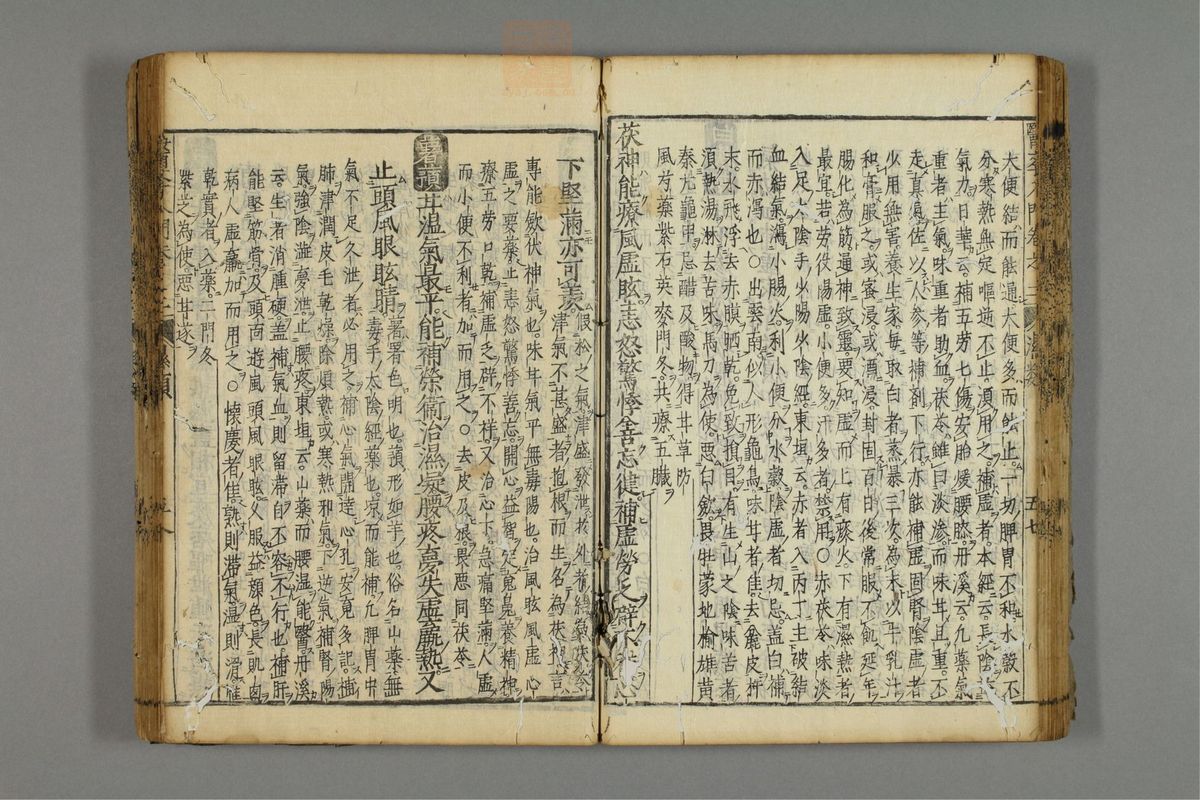 大便結而能通大便多而能止一切脾胃不和水穀不
分寒熱無定嘔逆不止須用之補虛者本經云長陰益
氣力日華云補五勞七傷安胎煖腰膝丹溪云凡藥氣
重者主氣味重者助血茯苓雖曰淡滲而味甘且重不
走真氣佐以人參等補劑下行亦能補虛固腎陰虛者
少用無害養生家每取白者蒸暴三次為末以牛乳汁
和膏服之或蜜浸或酒浸封固百日後常服不飢延年
腸化為筋通神致靈要知虛而上有痰火下有濕熱者
最宜若勞役陽虛小便多汗多者禁用○赤茯苓味淡
入足太陰手少陽火陰經東垣云赤者入丙丁主破結
血結氣瀉小腸火利小便分水穀陰虛者切忌盖白補
而赤瀉也○出雲南似人形龜鳥味甘者佳去龜皮神
末水飛浮去赤膜晒乾免致損目有生山之陰味苦者
須熱湯淋去苦味馬刀為使惡白斂畏牡蒙地榆雄黃
秦艽龜甲忌醋及酸物得甘草防
風芍藥紫石英麥門冬共療五臟
茯神能療風虛眩志怒驚悸善忘健補虛勞乏
下堅滿亦可羨
專能斂伏神氣也味甘氣平無毒陽也治風眩風虛心
虛之要藥止恚怒驚悸善忘開心益智定魂魄養精神
療五勞口乾補虛乏辟不祥又治心下急痛堅滿人虛
而小便不利者加而用之○去皮及根畏惡同茯苓
薯蕷甘溫氣最平能補榮衛治濕凝腰疼夢失虛羸熱又
止頭風眼眩睛
氣不足久泄者必用之補心氣開達心孔安魂多記補
肺津潤皮毛乾燥除煩熱或寒熱邪氣下逆氣補腎陽
氣強陰澁夢泄止腰疼東垣云山藥而腰濕能醫丹溪
云生者消腫硬盖補氣血則留滯自不容不行也補肝
能堅筋骨及頭面遊風頭風眼眩又服益顏色長肌肉
病人虛羸加而用之○懷慶者佳熟則滯氣溫則滑惟
乾實者入藥二門冬
紫芝為使惡甘遂